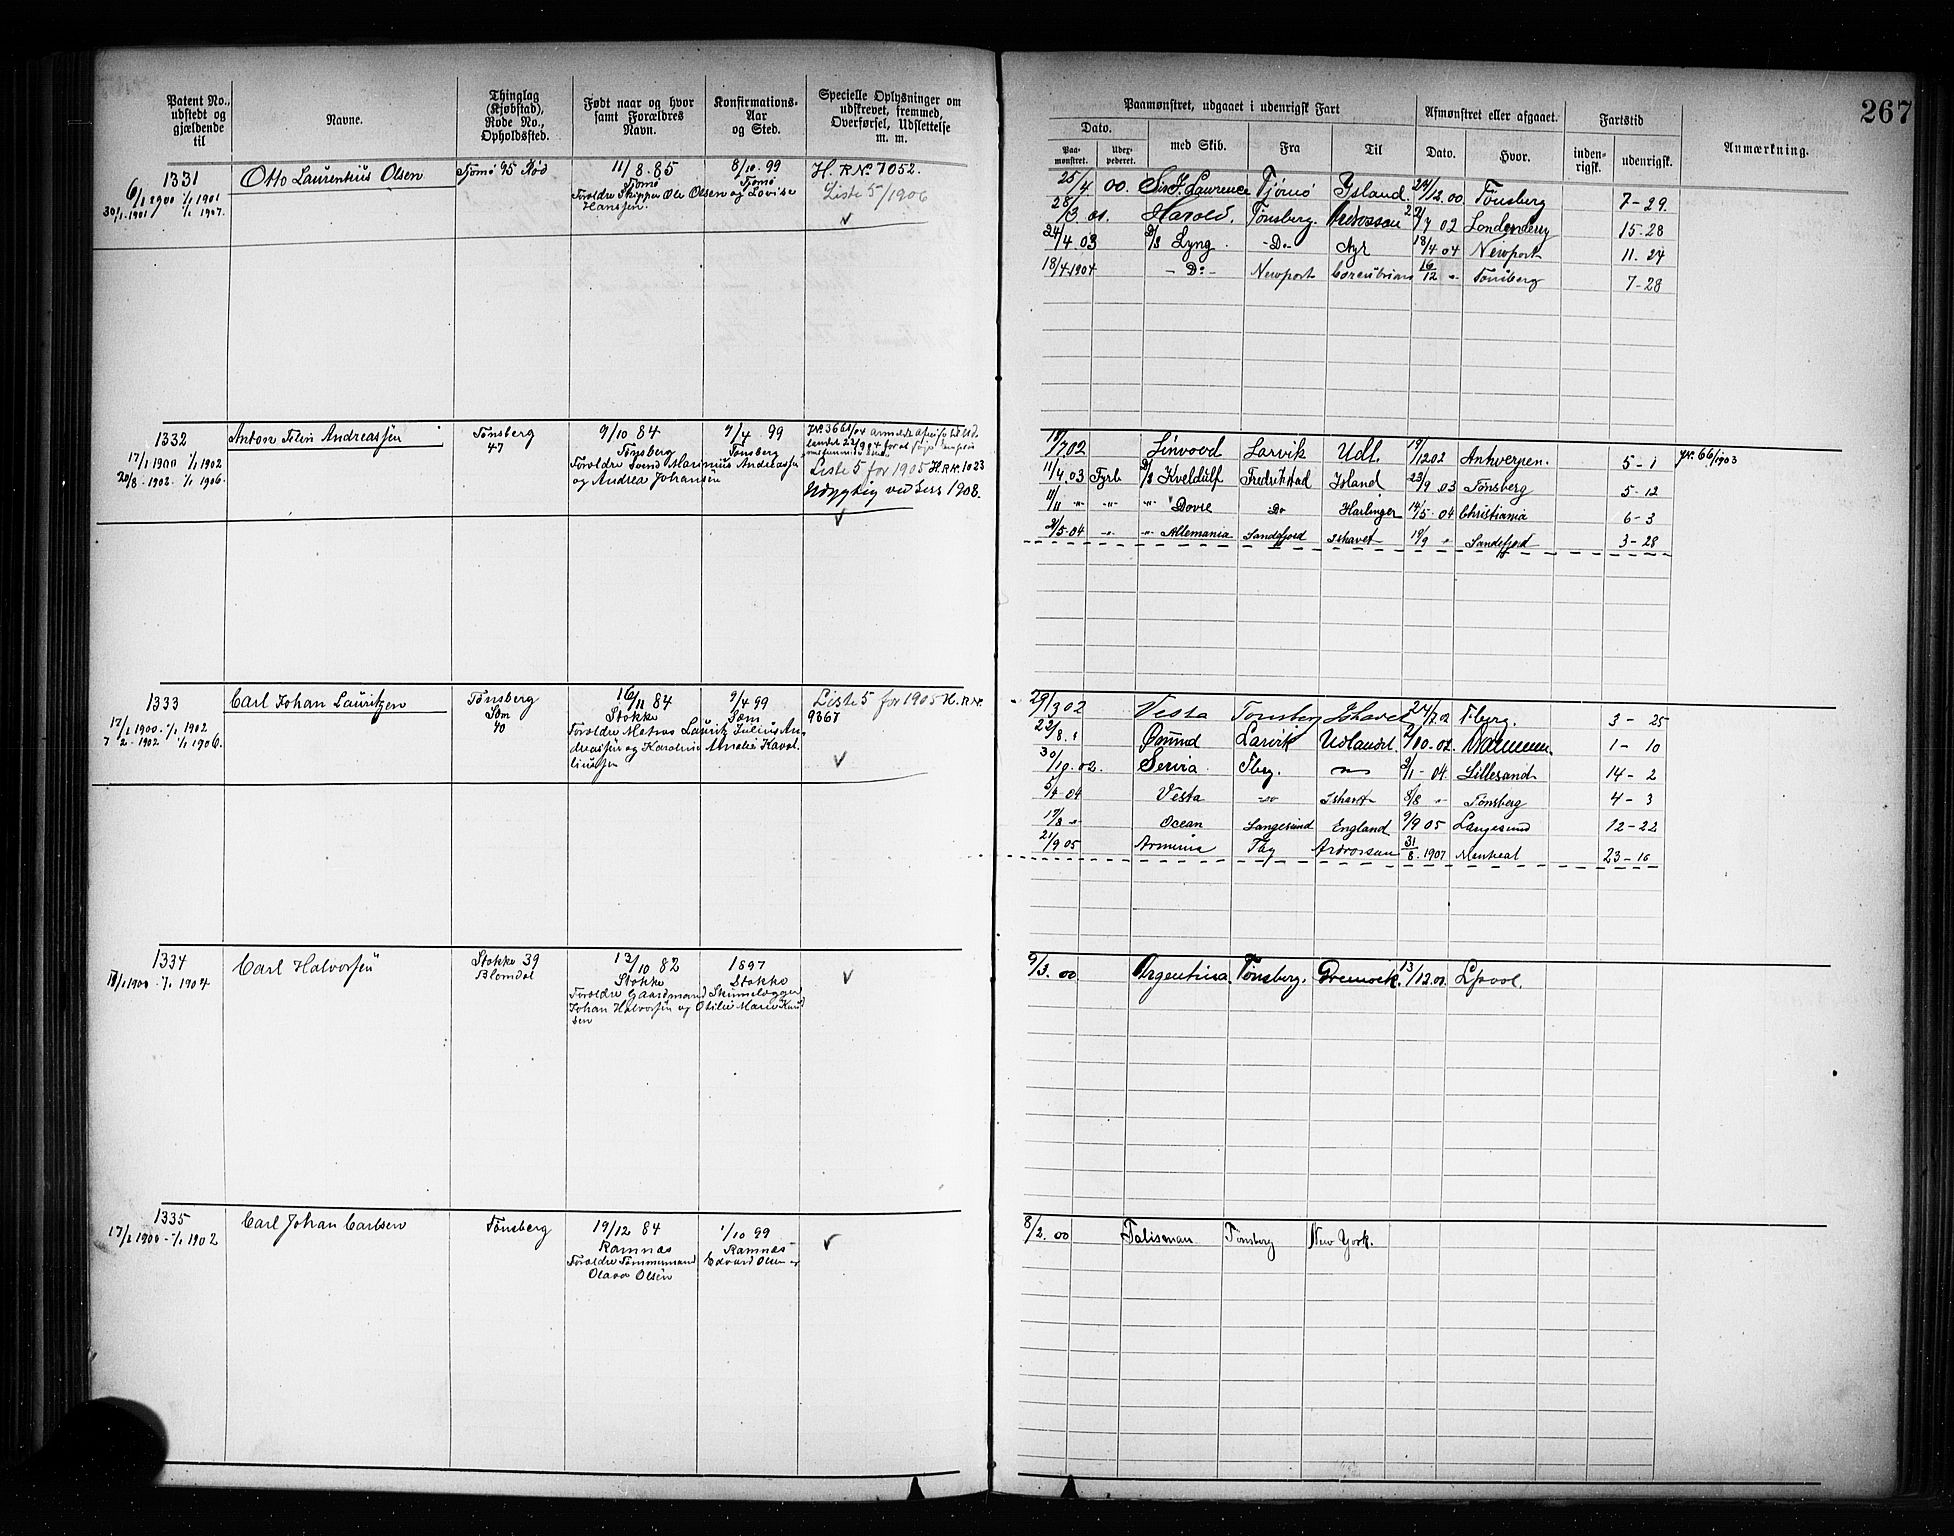 Patent No., udstedt og gjældende til
Navne.
Thinglag (Kjøbstad), Rode No., Opholdssted.
Født naar og hvor samt Forældres Navn.
Konfirmations-Aar og Sted.
Specielle Oplysninger om udskrevet, fremmed, Overførsel, Udslettelse m. m.
Paamønstret, udgaaet i udenrigsk Fart
Afmønstret eller afgaaet.
Fartstid
Anmærkning.
267
Dato.
Paamønstret.
med Skib.
Fra
Til
Dato.
Hvor.
indenrigsk.
udenrigsk.
1331
6/1 1900 1/1 1901
30/1 1901 1/1 1907.
Otto Laurentius Olsen
Tjømø 95 Rød
11/8.85
Tjømø
Foreldre Skipper Ole Olsen og Lovise
Hanssen.
8/10.99
Tjømø
H. R No. 7052.
Liste 5/1906
25/4 00. Sir J. Lawrence Tjømø Ysland. 24/12.00 Tønsberg 7-29.
28/3 01. Harold. Tønsberg. Ardrossan 22/7 02 Londonderry 15-28
24/4 03 D/S Lyng - Do - Ayr 18/4 04 Newport 11.24
18/4 1904 - Do - Newport 16/12 " Tønsberg 7-28
1332
17/1 1900 1/1 1902
20/8 - 1902 - 1/1 1906.
Anton Felix Andreassen
Tønsberg
47
9/10 84
Tønsberg
Foreldre Svend Marinius Andreassen
og Andrea Johansen
9/4 99
Tønsberg
Liste 5 for 1905 H R No. 1023
Udygtig ved Sess 1908.
19/7 02 Linwood Larvik Udl. 19/12 02 Antwerpen. 5-1 JN. 66/1903
11/4.03 Fyrb D/S Kveldulf Fredrikstad Island 23/9 03 Tønsberg 5-12
11/11 " " " Dovre Do Harlingen 14/5-04 Christiania 6-3
21/5-04 " " Allemania Sandefjord Ishavet 19/9 " Sandefjord 3-28
1333
17/1 1900. 1/1 1902
7/2 - 1902 1/1 1906.
Carl Johan Lauritzen
Tønsberg
Sem
40
16/11 84
Stokke
Foreldre Matros Lauritz Julius Andreassen og Karoline Amalie Karolinussen
9/4 99
Sem
Liste 5 for 1905 H. R No.
9367
29/3 02 Vesta Tønsberg Ishavet 24/7 02 T.berg. 3-25
22/8. " Ømund Larvik Udlandet. 2/10-02 Drammen. 1-10
30/10.02. Servia Tberg. " 2/1-04. Lillesand 14-2
5/4-04 Vesta " Ishavet 8/8 " Tønsberg 4-3
17/8 " Ocean Langesund England 9/9 05 Langesund 12-22
21/9 05 Arminia Tbg Ardrossan 31/8.1907 Montreal 23-10
1334
18/1 1900 - 1/1 1904
Carl Halvorsen
Stokke 39
Blomdal
13/10 82
Stokke
Foreldre Gaardmand
Johan Halvorsen og Otilie Marie Knudsen
1897
Stokke
9/3.00 Argentina. Tønsberg. Greenock. 13/12.00. Lpool.
1335
17/1 1900 - 1/1 1902
Carl Johan Carlsen
Tønsberg
19/12 84
Ramnæs
Foreldre Tømmermand Edvard Olsen og
Olava Olsen
1/10 99
Ramnæs
8/2.00 Talisman Tønsberg New York.